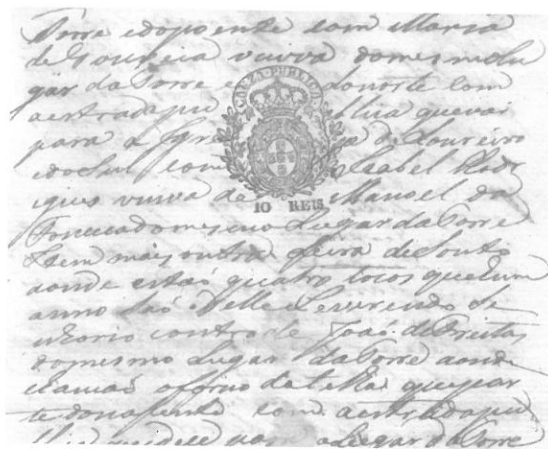 Torre e do poente com Maria
de Gouveia viuva do mesmo lu
gar da Torre e do norte com
a estrada pu blica que vai
para a Igre de Loureiro
e do sul com Isabel Rodr
igues viuva de Manoel da
Fonceca do mesmo Lugar da Torre
Item mais outra leira de Souto
aonde estaõ quatro tocos que hum
anno saõ delle Reverendo Se
nhorio e outro de Joaõ de Freitas
do mesmo Lugar da Torre aonde
chamaõ o forno da telha que par
te do nascente com a estrada pu
blica que vai para o Lugar da Torre
CAUZA PUBLICA
10 REIS